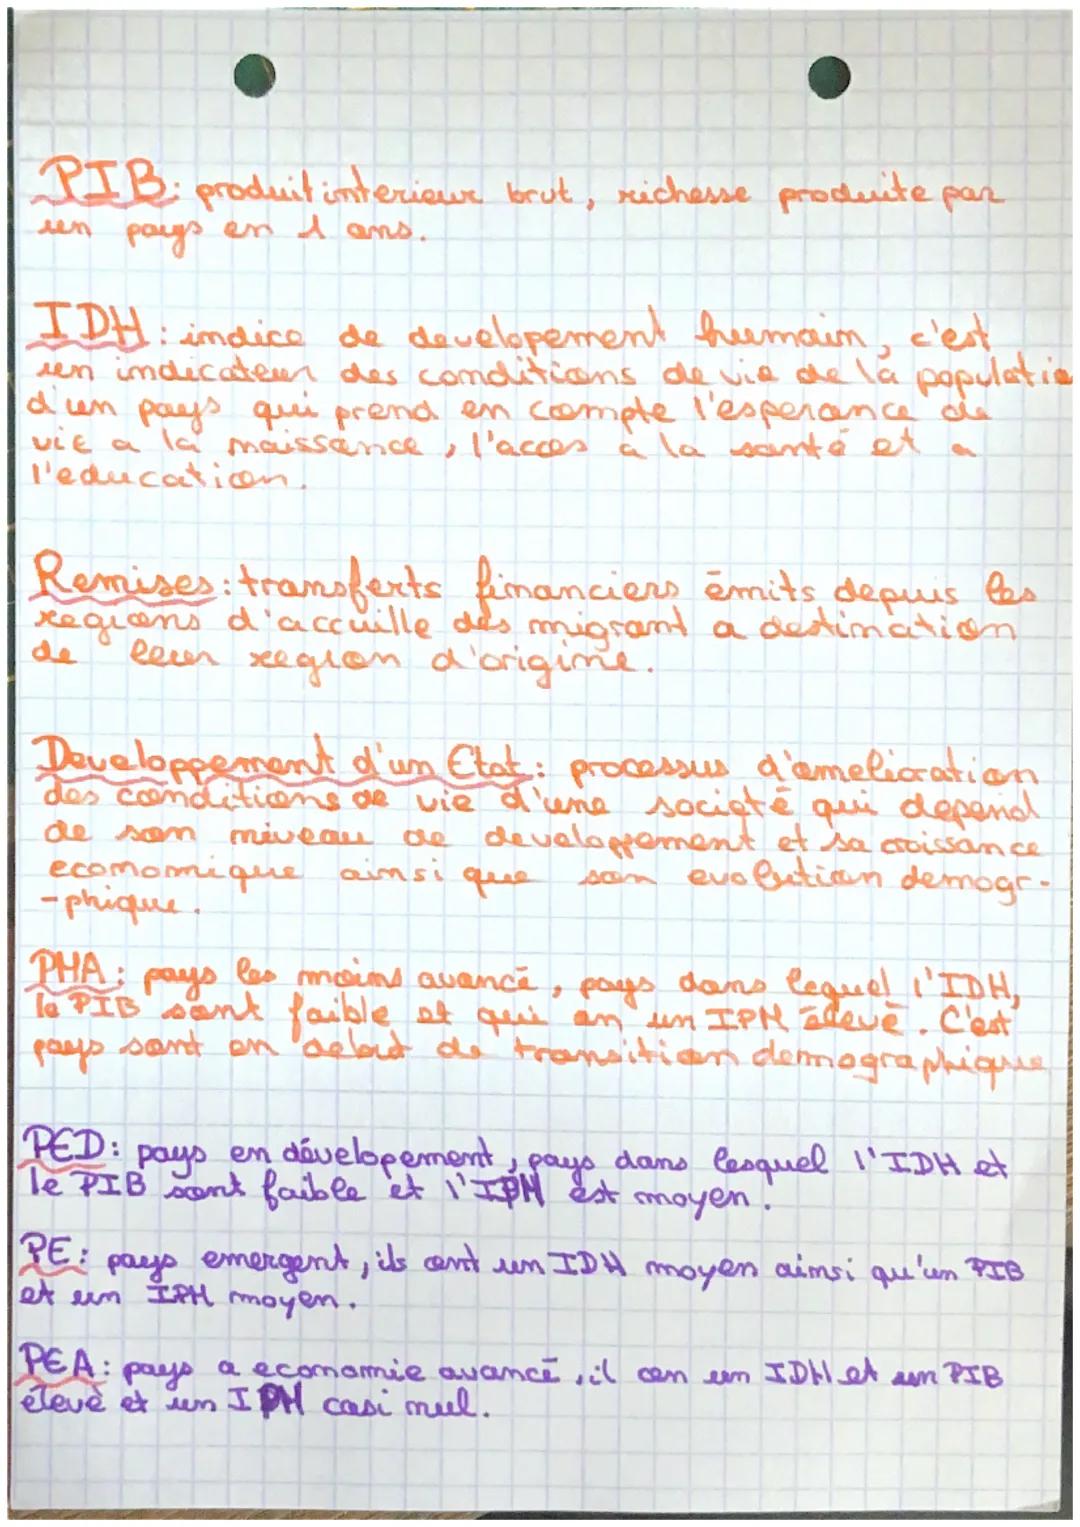 PIB: produit interieur brut, richesse produite par
un pays en 1 ans.
IDH: indice de developement humain, c'est
un indicateur des conditions de vie de la populatio
d'un pays qui prend en compte l'esperance de
vie a la naissance, l'acces à la santé et a
l'education.
Remises: transferts financiers émits depuis les
regions d'accuille des migrant a destination
de leur region d'origine.
Developpement d'un Etat: processus d'amelioration
des conditions de vie d'une societé qui depend
de son niveau de developpement et sa croissance
economique ainsi que son evolution demogr-
-phique.
PMA: pays les moins avancé, pays dans lequel l'IDH,
le PIB sont faible et qui on un IPM élevé. C'est
pays sont en debut de transition demographique
PED: pays en dévelopement, pays dans lesquel l'IDH et
le PIB sont faible et l'IPM est moyen.
PE: pays emergent, ils ont un IDH moyen ainsi qu'un PIB
et un IPM moyen.
PEA: pays a economie avancé, il on un IDH et un PIB
elevé et un IPM casi nul.